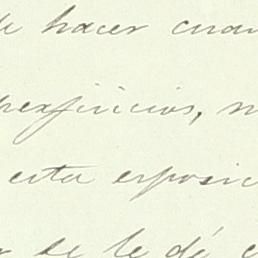 de hacer cuan
perjuicios, n
esta exposic
se le dé